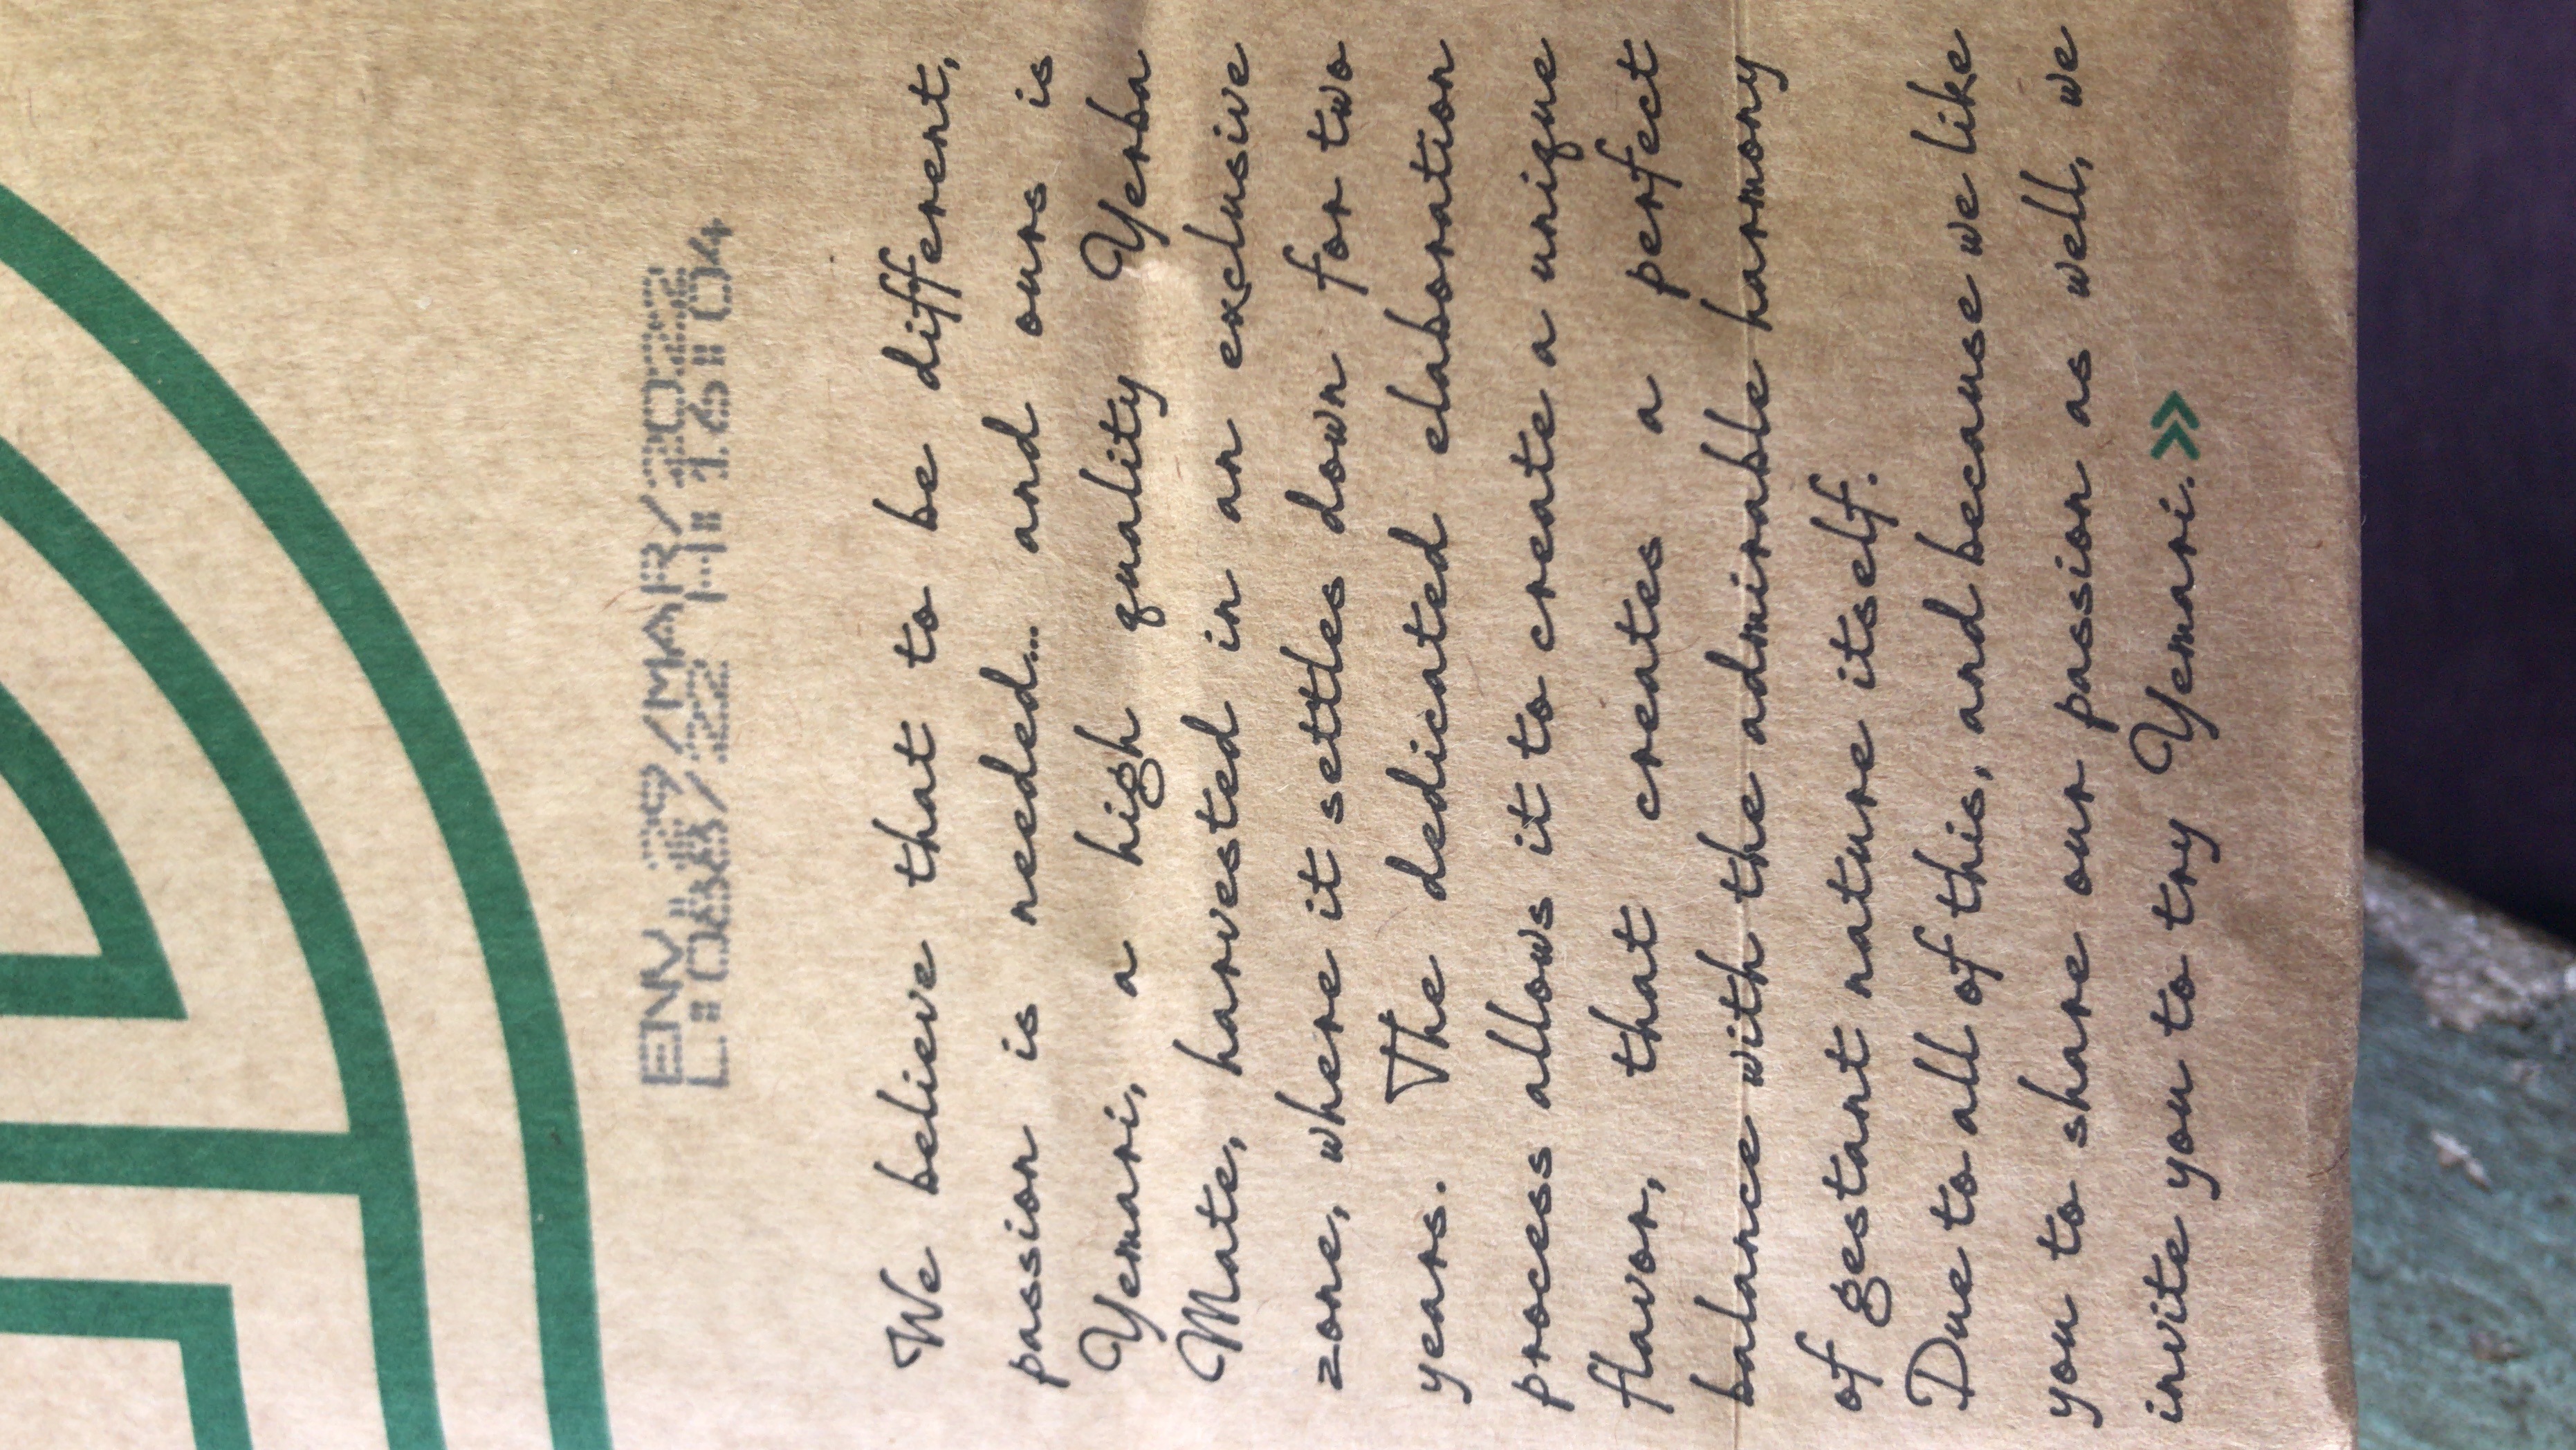 ENV. 29/MAR/2022
L:088/22 H:16:04
We believe that to be different,
passion is needed... and ours is
Yemari, a high quality Yerba
Mate, harvested in an exclusive
zone, where it settles down for two
years. The dedicated elaboration
process allows it to create a unique
flavor, that creates a perfect
balance with the admirable harmony
of gestant nature itself.
Due to all of this, and because we like
you to share our passion as well, we
invite you to try Yemari.»